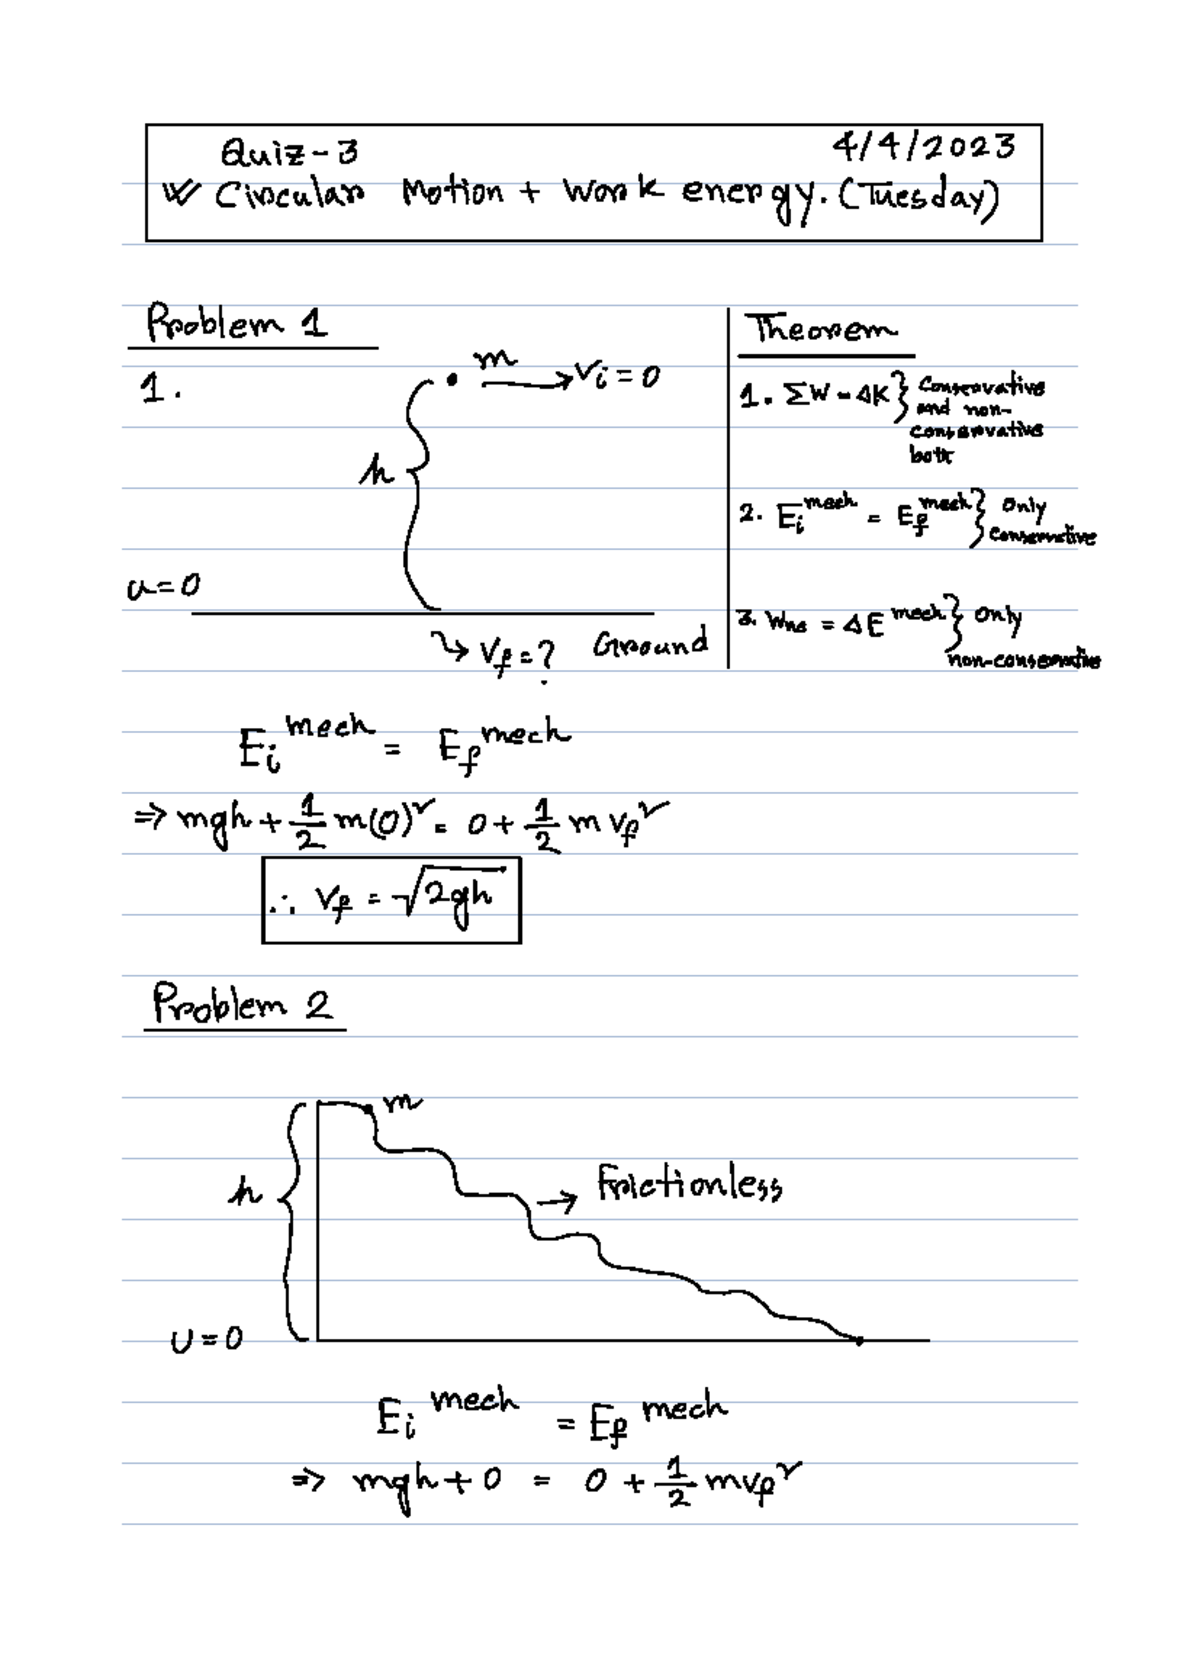 Quiz-3 4/4/2023
W Circular Motion + Work energy. (Tuesday)
Problem 1
1.
m
→ Vi = 0
h
u=0
→ Vf = ?
Ground
Theorem
1. ΣW = ΔK } Conservative
and non-
conservative
both
2. Ei^mech = Ef^mech } Only
conservative
3. Wnc = ΔE^mech } Only
non-conservative
Ei^mech = Ef^mech
⇒ mgh + 1/2 m(0)² = 0 + 1/2 m vf²
∴ Vf = √2gh
Problem 2
m
h
→ Frictionless
U=0
Ei^mech = Ef^mech
⇒ mgh + 0 = 0 + 1/2 mvf²